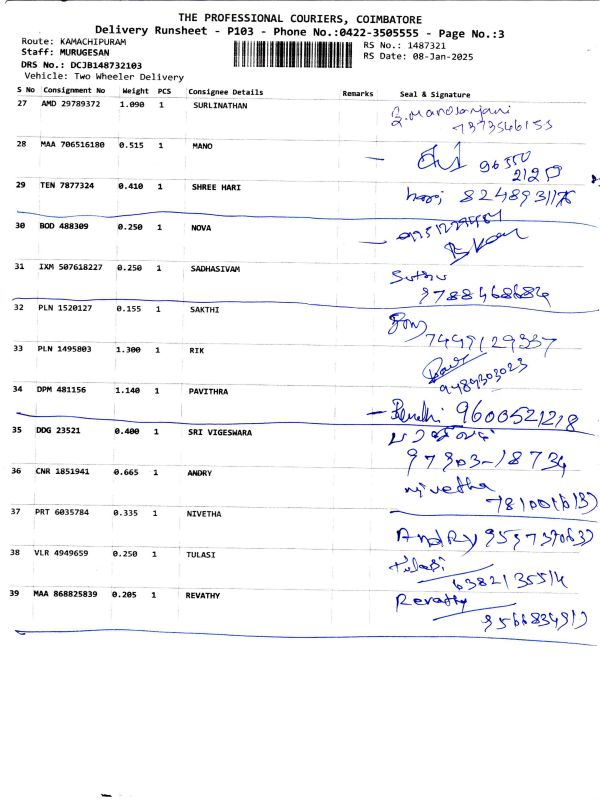 THE PROFESSIONAL COURIERS, COIMBATORE
Delivery Runsheet - P103 - Phone No.:0422-3505555 - Page No.:3
Route: KAMACHIPURAM RS No.: 1487321
Staff: MURUGESAN RS Date: 08-Jan-2025
DRS No.: DCJB148732103
Vehicle: Two Wheeler Delivery
S No Consignment No Weight PCS Consignee Details Remarks Seal & Signature
27 AMD 29789372 1.090 1 SURLINATHAN
7373546153
28 MAA 706516180 0.515 1 MANO
29 TEN 7877324 0.410 1 SHREE HARI
hari
30 BOD 488309 0.250 1 NOVA
31 IXM 507618227 0.250 1 SADHASIVAM
9788468684
32 PLN 1520127 0.155 1 SAKTHI
7449129337
33 PLN 1495803 1.300 1 RIK
9489303023
34 DPM 481156 1.140 1 PAVITHRA
9600521218
35 DDG 23521 0.400 1 SRI VIGESWARA
97903-18734
36 CNR 1851941 0.665 1 ANDRY
nivetha
37 PRT 6035784 0.335 1 NIVETHA
AndRy
38 VLR 4949659 0.250 1 TULASI
Tulasi
6382135514
39 MAA 868825839 0.205 1 REVATHY
Revathy